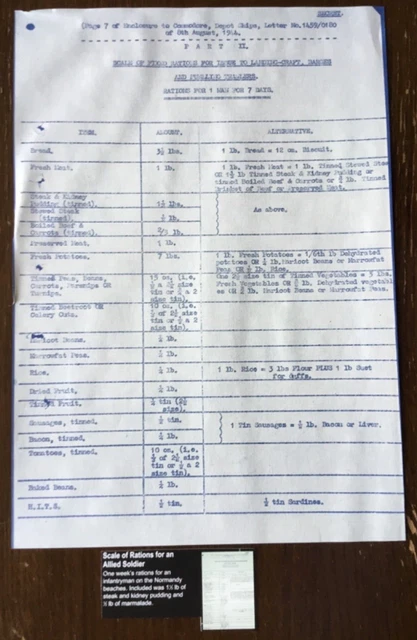 SECRET.
(Page 7 of Enclosure to Commodore, Depot Ships, Letter No.1459/0180
of 8th August, 1944.
PART II.
SCALE OF FIXED RATIONS FOR ISSUE TO LANDING-CRAFT, BARGES
AND FUELLING TRAWLERS.
RATIONS FOR 1 MAN FOR 7 DAYS.
ITEM. AMOUNT. ALTERNATIVE.
Bread. 3½ lbs. 1 lb. Bread = 12 oz. Biscuit.
Fresh Meat. 1 lb. 1 lb. Fresh Meat = 1 lb. Tinned Stewed Stea
OR 1½ lb Tinned Steak & Kidney Pudding or
tinned Boiled Beef & Carrots or lb. Tinned
Brisket of Beef or Preserved Meat.
Steak & Kidney
Pudding (tinned). lbs.
Stewed Steak
(tinned). lb. As above.
Boiled Beef &
Carrots (tinned). 2/3 lb.
Preserved Meat. 1 lb.
Fresh Potatoes. 7 lbs. 1 lb. Fresh Potatoes = 1/6th lb Dehydrated
potatoes OR lb. Haricot Beans or Marrowfat
Peas OR lb. Rice.
Tinned Peas, Beans,
Carrots, Parsnips OR
Turnips. 15 oz. (i.e.
½ a 2½ size
tin or a 2
size tin). One 2½ size tin of Tinned Vegetables = 3 lbs.
Fresh Vegetables OR lb. Dehydrated vegetabl
es OR lb. Haricot Beans or Marrowfat Peas.
Tinned Beetroot OR
Celery Cuts. 10 oz. (i.e.
of 2½ size
tin or ½ a 2
size tin).
Haricot Beans. lb.
Marrowfat Peas. lb.
Rice. lb. 1 lb. Rice = 3 lbs Flour PLUS 1 lb Suet
for Duffs.
Dried Fruit. lb.
Tinned Fruit. tin (2½
size).
Sausages, tinned. tin.
Bacon, tinned. lb. 1 Tin Sausages = lb. Bacon or Liver.
Tomatoes, tinned. 10 oz. (i.e.
of 2½ size
tin or ½ a 2
size tin).
Baked Beans. lb.
H.I.T.S. tin. tin Sardines.
Scale of Rations for an
Allied Soldier
One week's rations for an
infantryman on the Normandy
beaches. Included was lb of
steak and kidney pudding and
lb of marmalade.